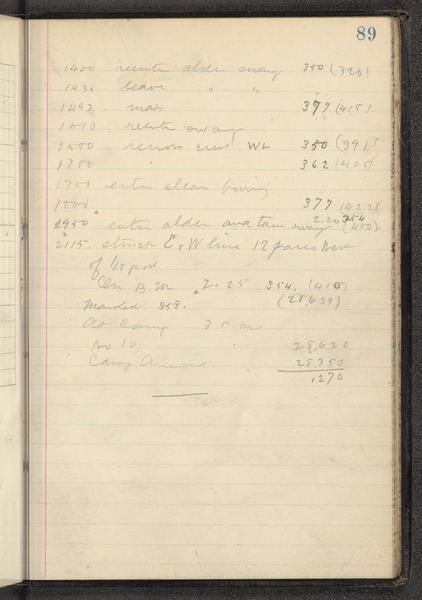 89
1400 reenter alder swag 350 (320)
1436 leave " "
1492 max 377 (415)
1510 reenter swag
1500 recross creek WL 350 (391)
1750 " 362 (405)
1700 enter clean buring
1800 377 (422)
1950 enter alder and tam. swag 2.20 354 (400)
2115 struck E & W line 12 paces West
of 1/4 post
On B. M 2.25 354. (410)
Marked 858. (28,639)
At Camp 3 P. M
No 10 28,620
Camp Aneroid 28,350
.270